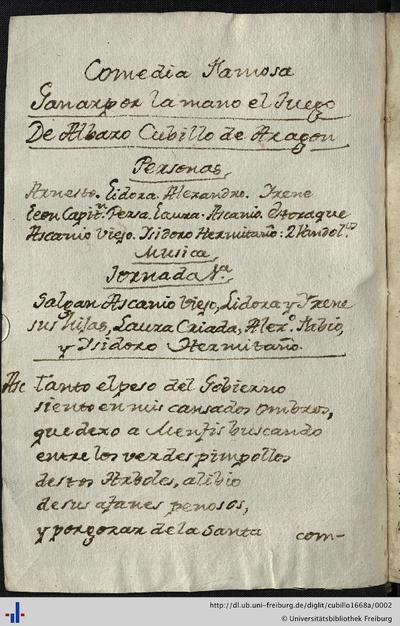 Comedia Famosa
Ganar por la mano el Juego
De Albaro Cubillo de Aragon
Personas,
Arnesto. Lidora. Alexandro. Yrene
Leon Capitn. Persa. Laura. Ascanio. 
Ascanio Viejo. Isidoro Hermitaño: 2 Vandols.
Musica,
Jornada 1ª
Salgan Ascanio Viejo, Lidora y Yrene
sus hijas, Laura Criada, Alexo. Fabio,
y Ysidoro Hermitaño.
Asc Tanto el peso del Gobierno
siento en mis cansados ombros,
que dexo a Menfis buscando
entre los verdes pimpollos
destos Arboles, alibio
de sus afanes penosos,
y por gozar de la Santa com-
http://dl.ub.uni-freiburg.de/diglit/cubillo1668a/0002
© Universitätsbibliothek Freiburg